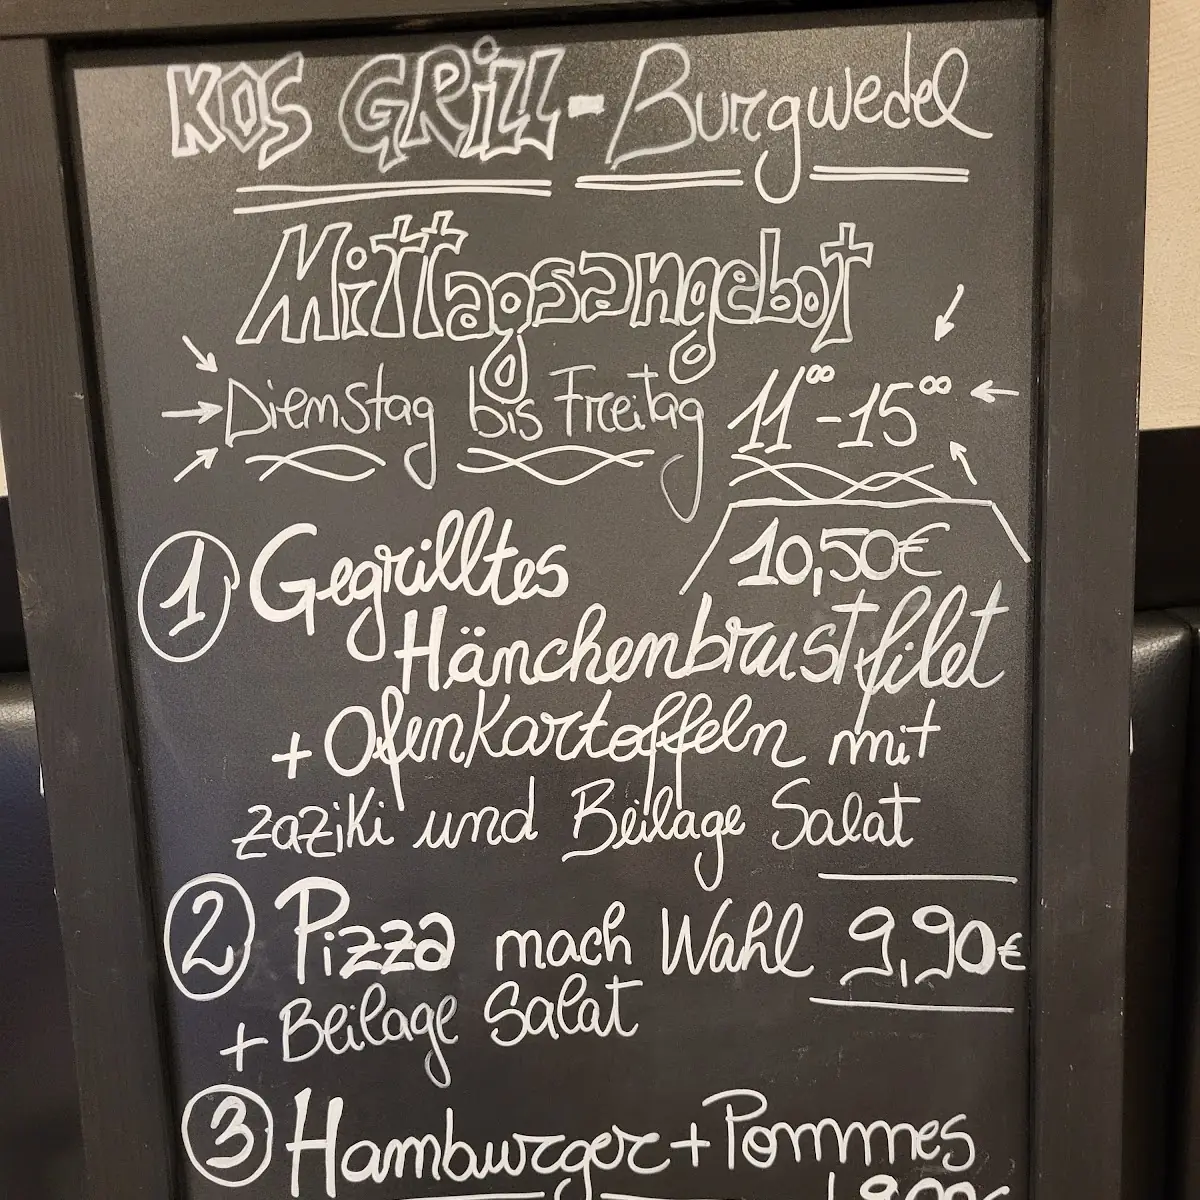 KOS GRiLL - Burgwedel
Mittagsangebot
Dienstag bis Freitag 11⁰⁰ - 15⁰⁰
1 Gegrilltes 10,50€
Hänchenbrustfilet
+ Ofenkartoffeln mit
zaziki und Beilage Salat
2 Pizza nach Wahl 9,90€
+ Beilage Salat
3 Hamburger + Pommes